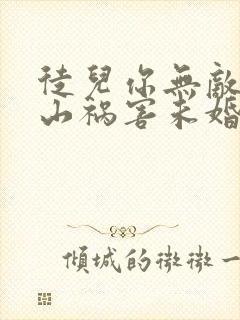 徒兒你無敵
山禍害未婚
傾城的微微一